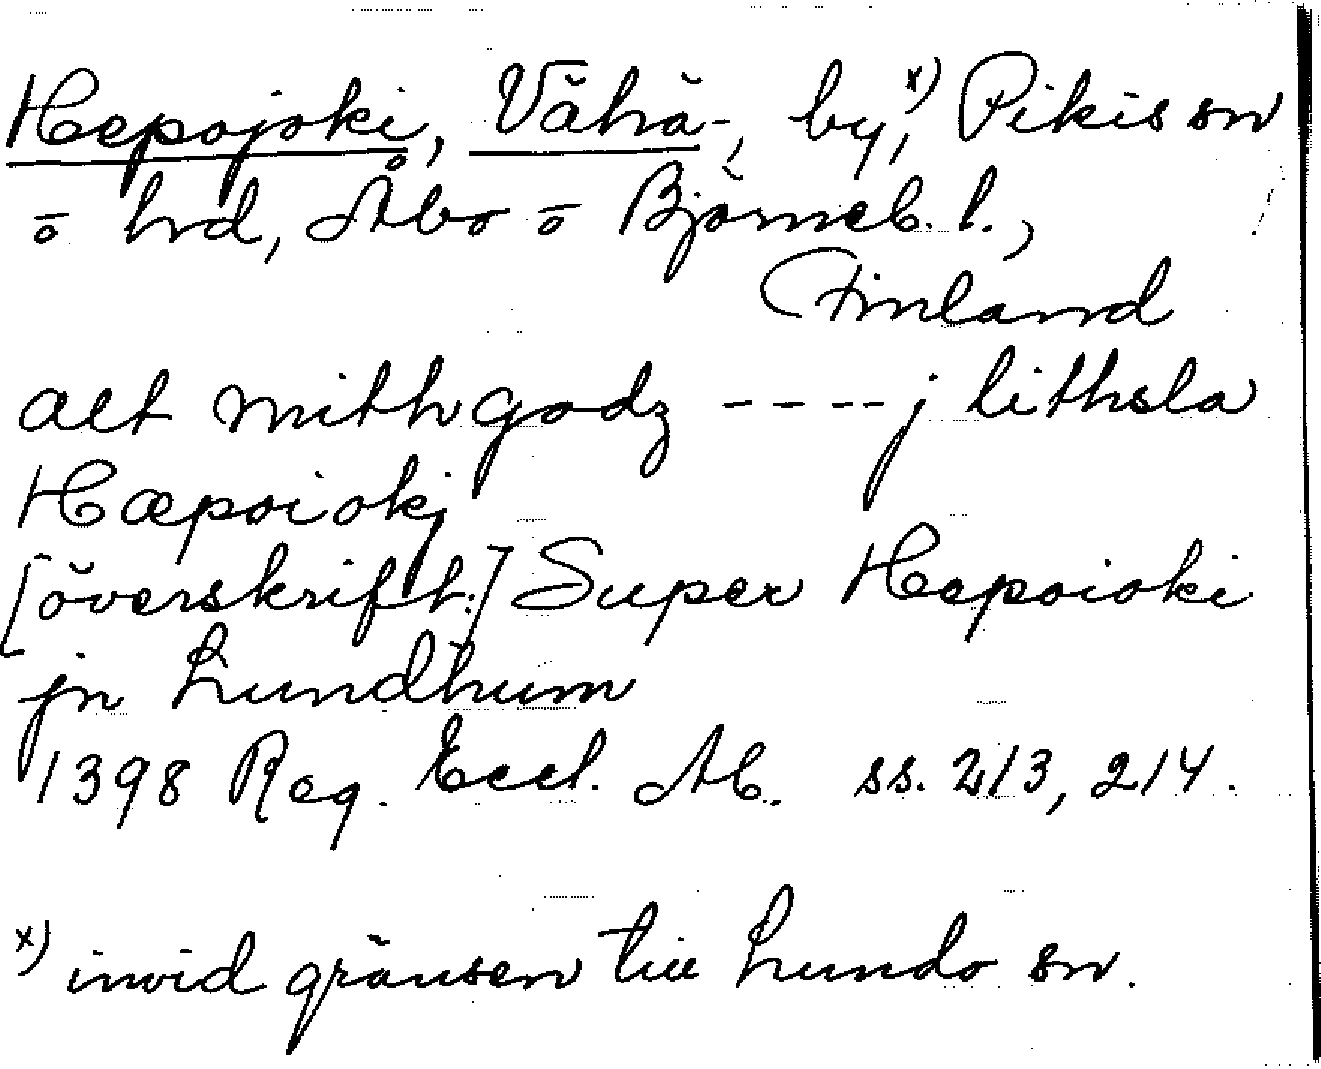 Hepojoki, Vähä-, by,x) Pikis sn
o hrd, Åbo o Björneb. l.,
Finland
alt mith godz ---- j lithsla
Hæpoiokj
[överskrift:] Super Hepoioki
jn Lundhum
1398 Reg. Eccl. Ab. ss. 213, 214.
x) invid gränsen till Lundo sn.